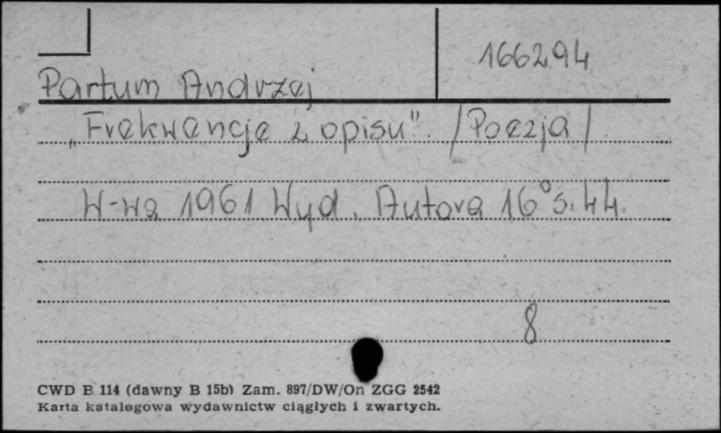 166294
Partum Andrzej
„Frekwencje z opisu". /Poezja/
W-wa 1961 Wyd. Autora 16° s. 44.
8
CWD B 114 (dawny B 15b) Zam. 897/DW/On ZGG 2542
Karta katalogowa wydawnictw ciągłych i zwartych.